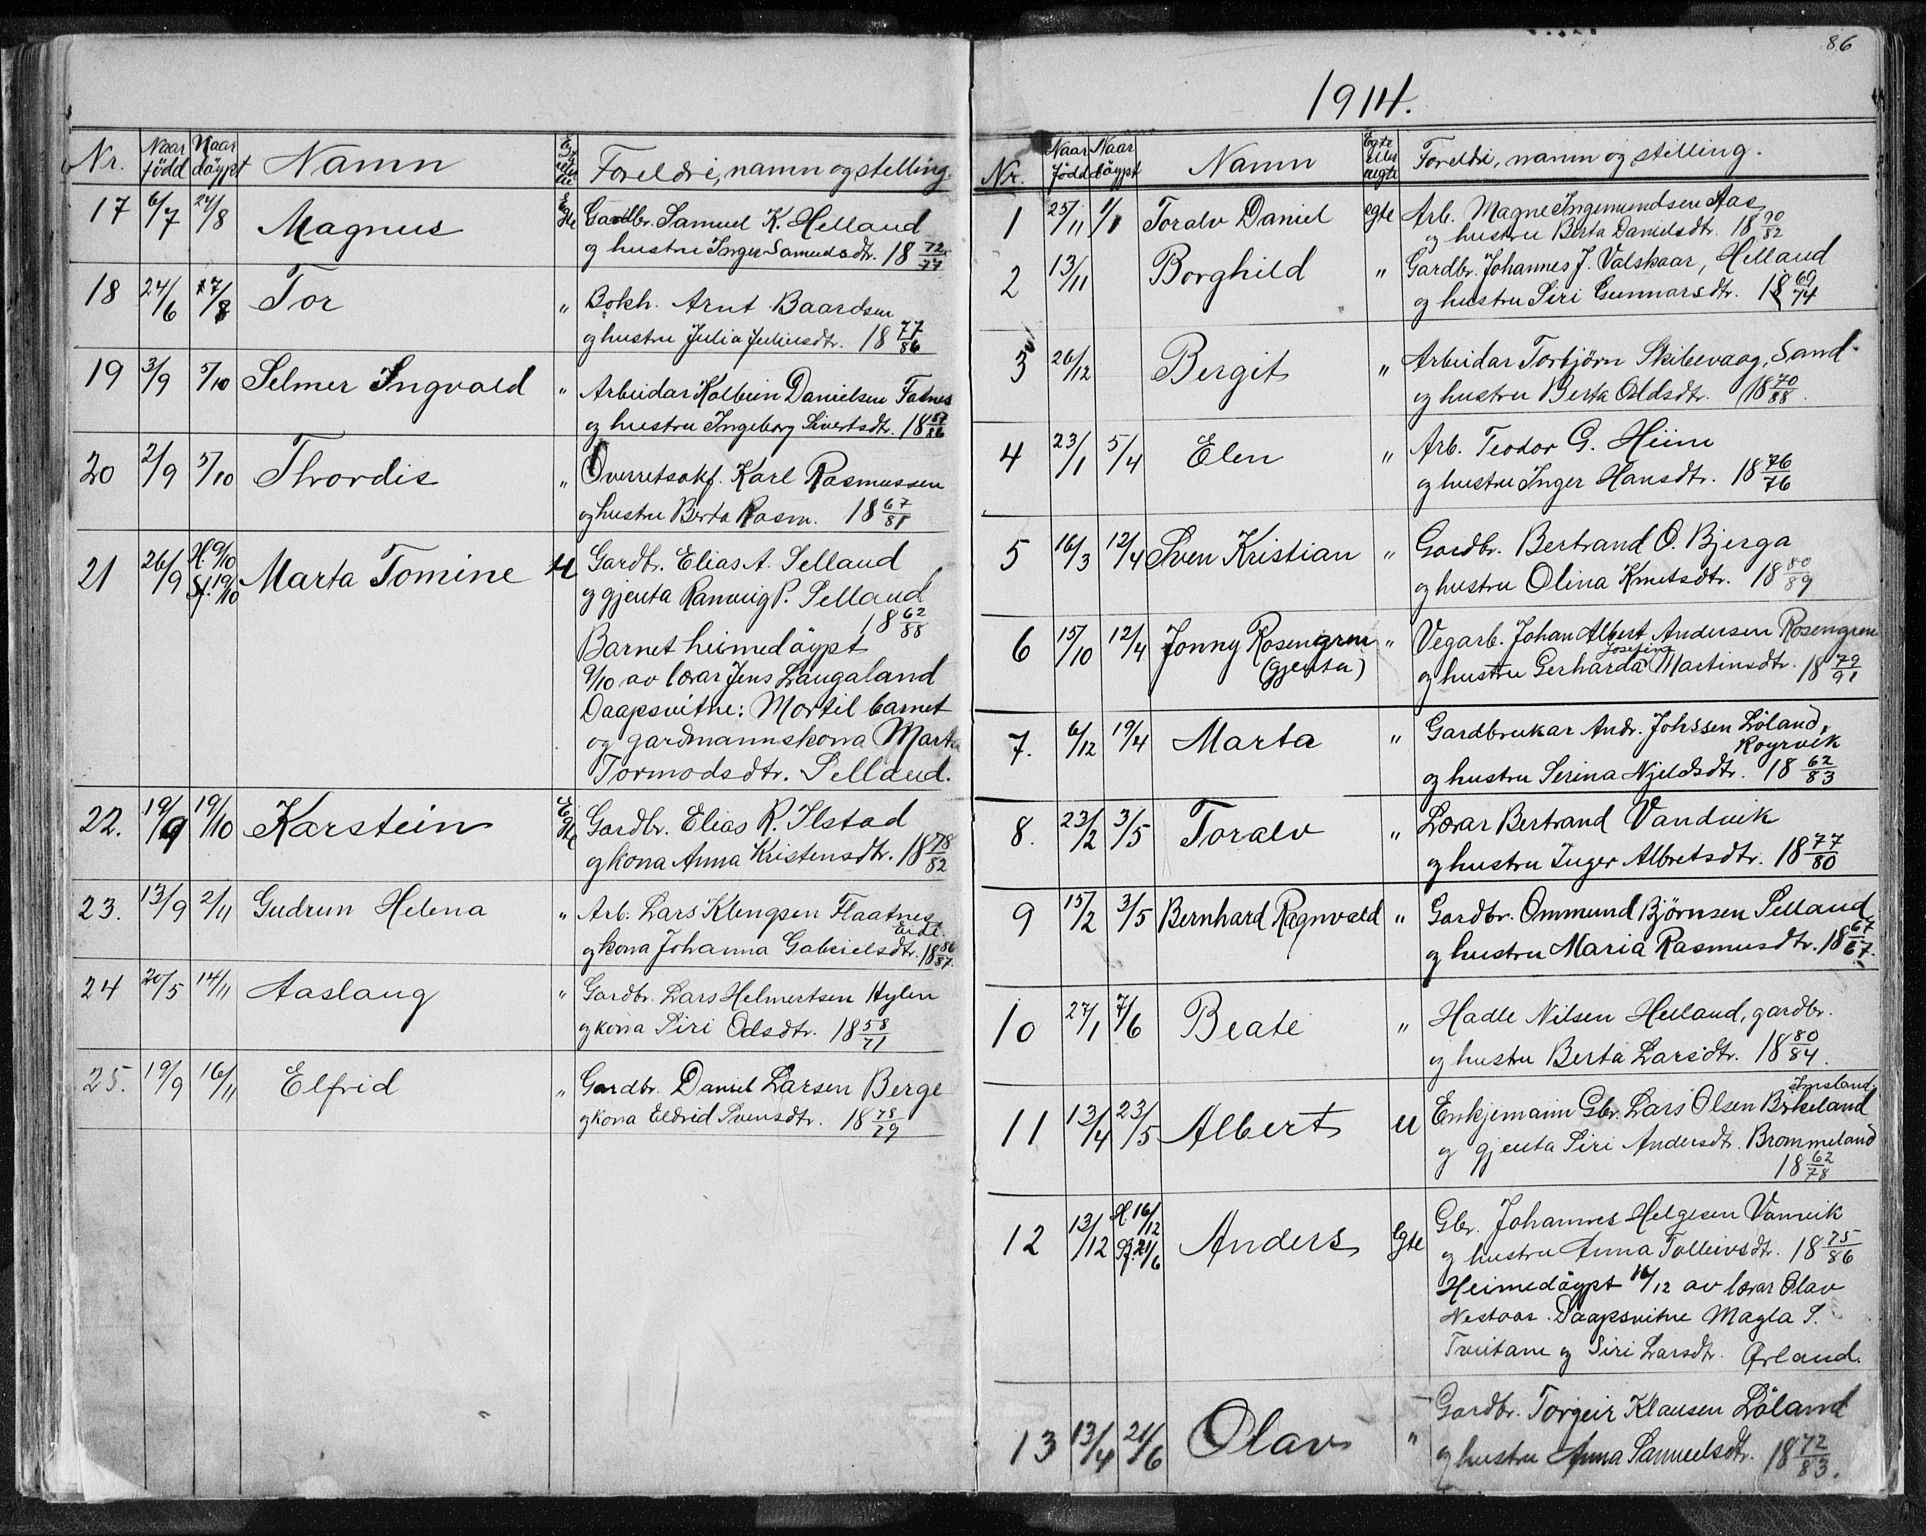 Nr. Naar född Naar döypt Namn Foreldri, namn og stilling.
17 6/7 24/8 Magnus Egte Gardbr. Samuel K. Helland
og hustru Inger Samuelsdtr. 18 72/77
18 24/6 17/8 Tor " Bokh. Arnt Baardsen
og hustru Julia Juliusdtr. 18 77/86
19 3/9 5/10 Selmer Ingvald " Arbeidar Kolbein Danielsen Fatnes
og hustru Ingeborg Sivertsdtr. 18 87/86
20 2/9 5/10 Thordis " Overretsakf. Karl Rasmussen
og hustru Berta Rasm. 18 67/81
21 26/9 H. 9/10 Marta Tomine U Gardbr. Elias A. Selland
St. 19/10 og gjenta Ranveig P. Selland
18 62/88
Barnet heimedöypt
9/10 av lærar Jens Laugaland
Daapsvitne: Mortil barnet
og gardmannskona Marta
Tormodsdtr. Selland.
22. 19/9 19/10 Karstein Egte Gardbr. Elias R. Ilstad
og kona Anna Kristensdtr. 18 78/82
23. 13/9 2/11 Gudrun Helena " Arb. Lars Klengsen Flaatnes
Eide.
og kona Johanna Gabrielsdtr. 18 86/87.
24 20/5 14/11 Aaslaug " Gardbr. Lars Helmertsen Hylen
og kona Siri Odsdtr. 18 58/71
25. 19/9 16/11 Elfrid " Gardbr. Daniel Larsen Berge
og kona Eldrid Svensdtr. 18 78/79
86
1914.
Nr. Naar född Naar döypt Namn Egte eller uegte Foreldri, namn og stilling.
1 25/11 1/1 Toralv Daniel egte Arb. Magne Ingemundsen Aas
og hustru Berta Danielsdtr. 18 90/82
2 13/11 Borghild " Gardbr. Johannes J. Valskaar, Helland
og hustru Siri Gunnarsdtr. 18 69/74
3 26/12 Bergit " Arbeidar Torbjörn Skibevaag, Sand
og hustru Berta Oldsdtr. 18 70/88.
4 23/1 5/4 Elen " Arb. Teodor G. Heim
og hustru Inger Hansdtr. 18 76/76
5 16/3 12/4 Sven Kristian " Gardbr. Bertrand O. Bjerga
og hustru Olina Knutsdtr. 18 80/89
6 15/10 12/4 Jonny Rosengren " Vegarb. Johan Albert Andersen Rosengren
(gjenta) Josefine
og hustru Gerharda Martinsdtr. 18 79/91
7. 6/12 19/4 Marta " Gardbrukar Andr. Johssen Löland,
Royrvik
og hustru Serina Njeldsdtr. 18 62/83
8. 23/2 3/5 Toralv " Lærar Bertrand Vandvik
og hustru Inger Albretsdtr. 18 77/80
9 15/2 3/5 Bernhard Ragnvald " Gardbr. Ommund Björnsen Selland
og hustru Maria Rasmusdtr. 18 67/67.
10 27/1 7/6 Beate " Hadle Nilsen Helland, gardbr.
og hustru Berta Larsdtr. 18 80/84.
Imsland
11 13/4 23/5 Albert U Enkjemann Gbr. Lars Olsen Birkeland
og gjenta Siri Andersdtr. Brommeland
18 62/78
12 13/12 H 16/12 Anders Egte Gbr. Johannes Helgesen Vanvik
St. 21/6 og hustru Anna Tolleivsdtr. 18 75/86
Heimedöypt 16/12 av lærar Olav
Nestaas. Daapsvitne Magla S.
Tveitane og Siri Larsdtr. Ørland.
13 13/4 21/6 Olav " Gardbr. Torgeir Klausen Löland
og hustru Anna Samuelsdtr. 18 72/83.